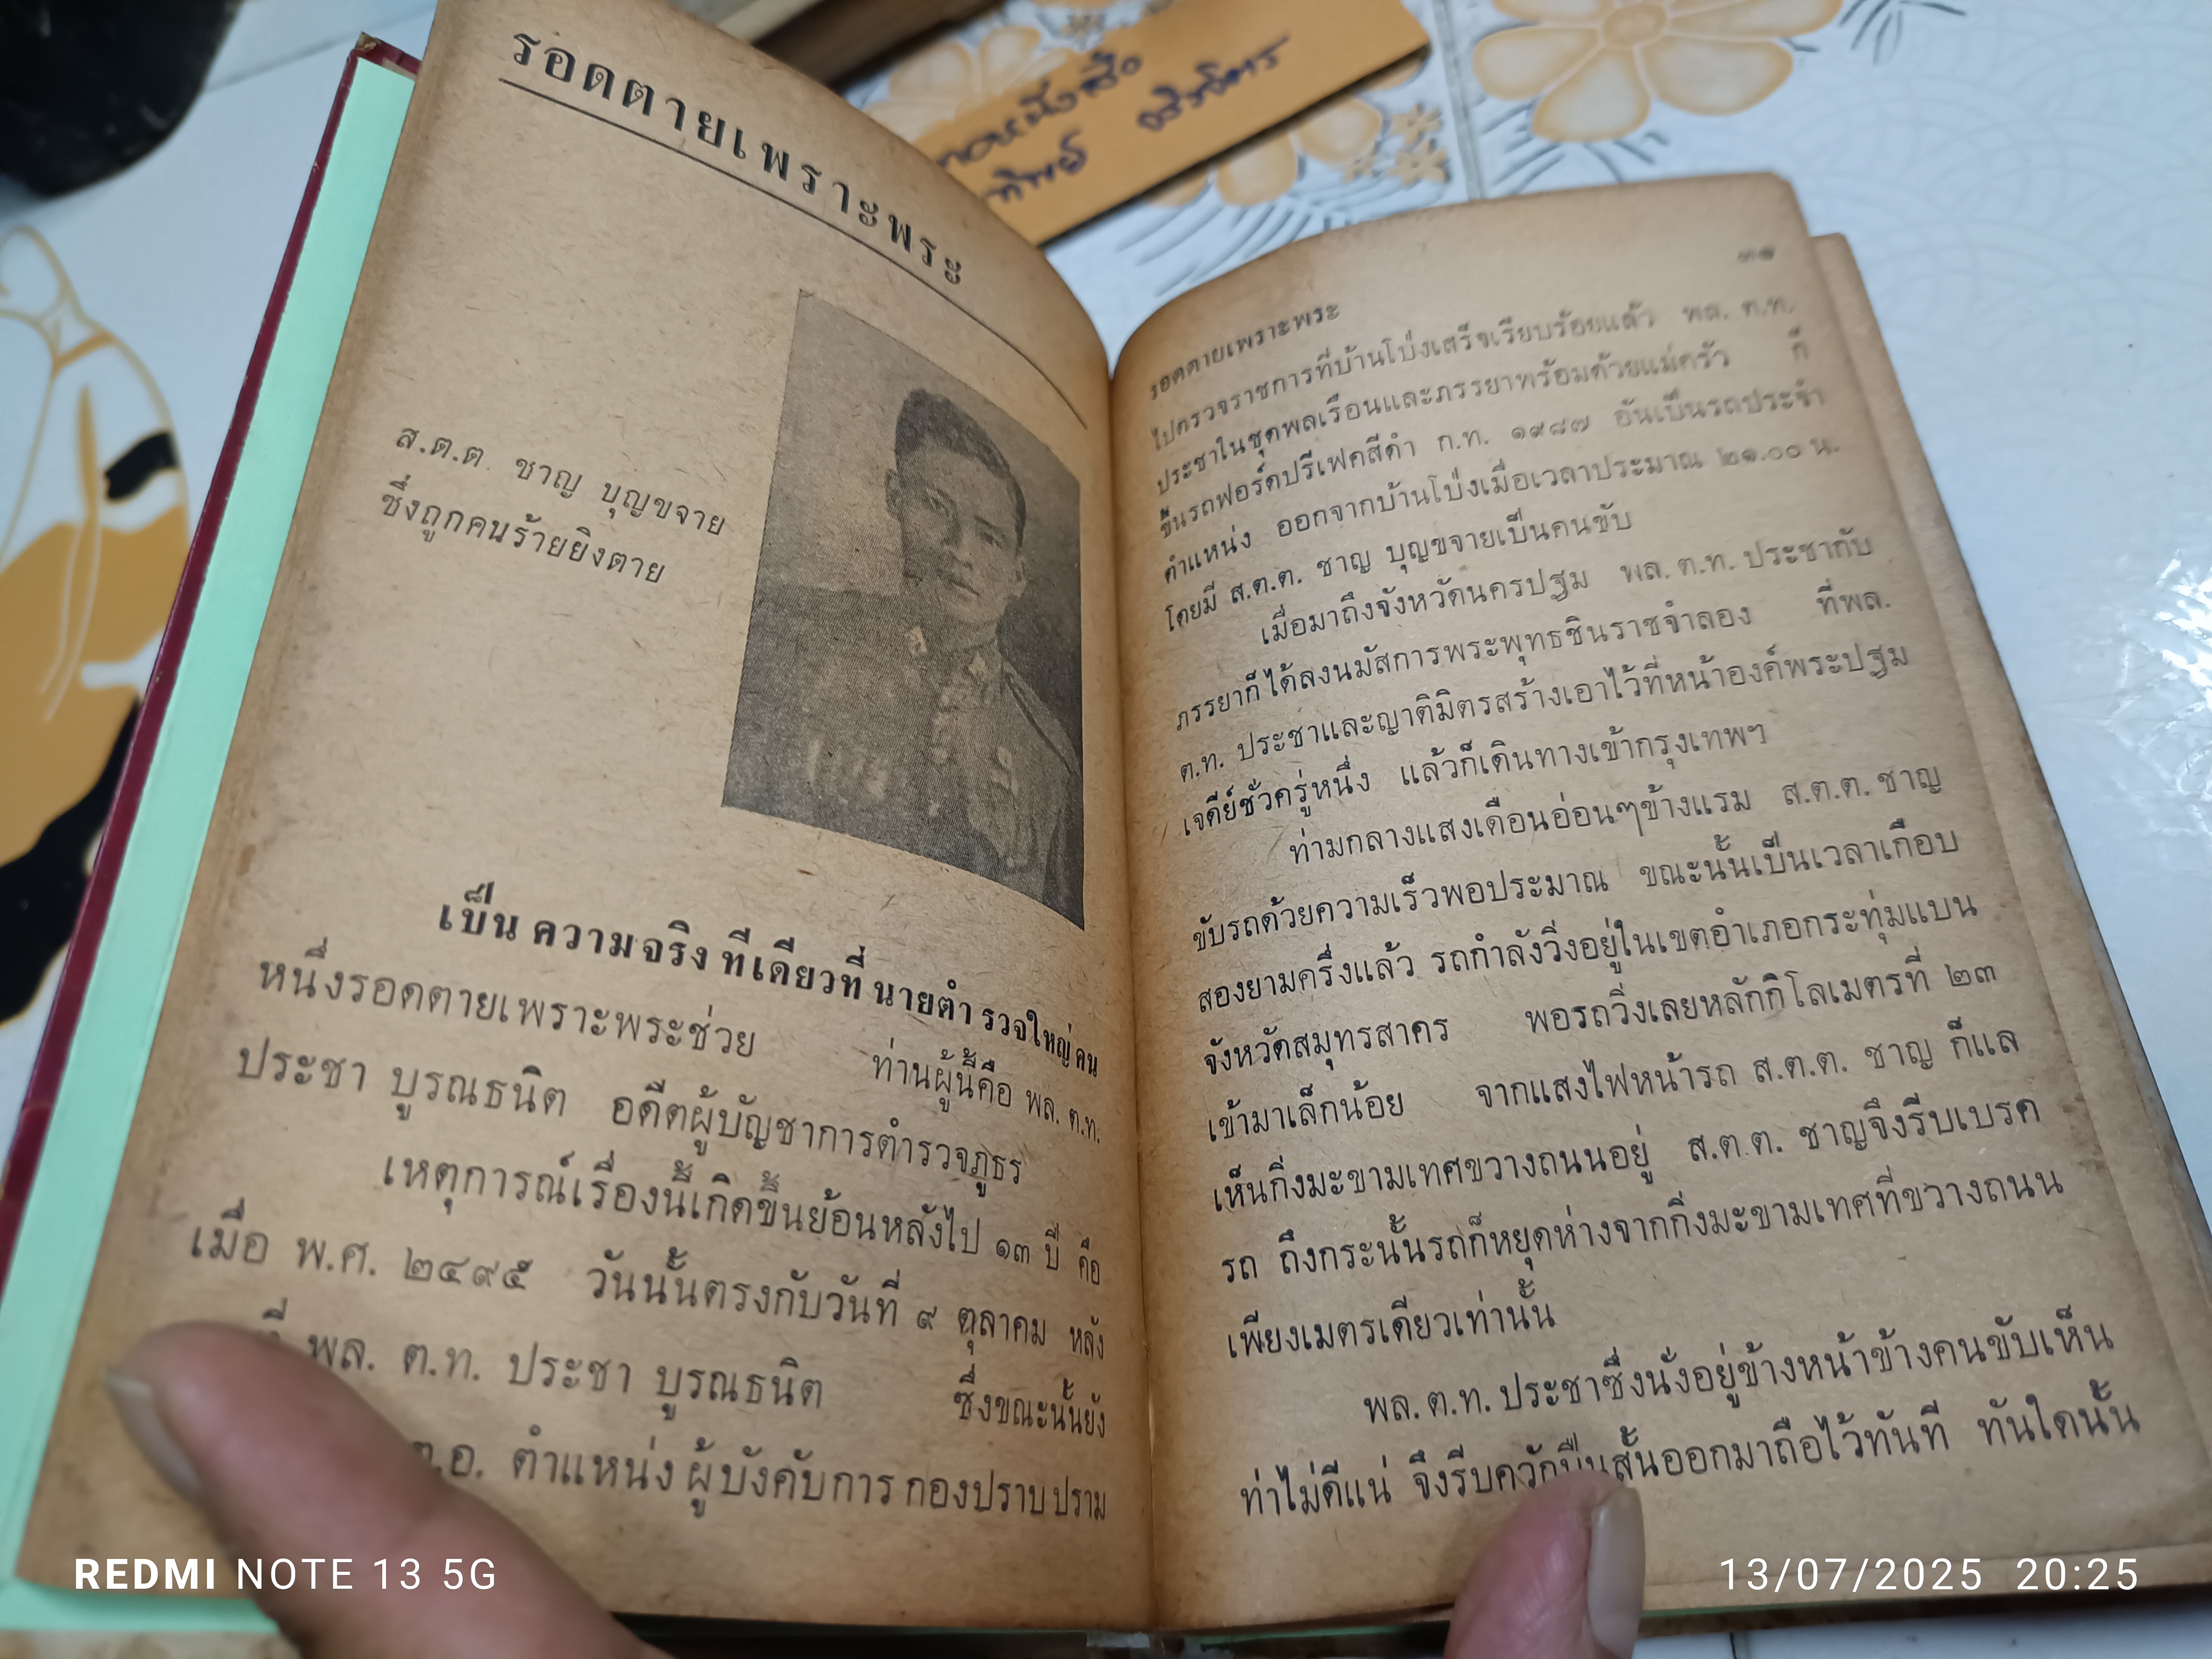 รอดตายเพราะพระ
ส.ต.ต. ชาญ บุญขจาย
ซึ่งถูกคนร้ายยิงตาย
เป็นความจริงทีเดียวที่นายตำรวจใหญ่คน
หนึ่งรอดตายเพราะพระช่วย ท่านผู้นี้คือ พล. ต.ท.
ประชา บูรณธนิต อดีตผู้บัญชาการตำรวจภูธร
เหตุการณ์เรื่องนี้เกิดขึ้นย้อนหลังไป ๑๓ ปี คือ
เมื่อ พ.ศ. ๒๔๙๕ วันนั้นตรงกับวันที่ ๙ ตุลาคม หลัง
ที่ พล. ต.ท. ประชา บูรณธนิต ซึ่งขณะนั้นยัง
ต.อ. ตำแหน่งผู้บังคับการกองปราบปราม
รอดตายเพราะพระ
๓๑
ไปตรวจราชการที่บ้านโป่งเสร็จเรียบร้อยแล้ว พล. ต.ท.
ประชาในชุดพลเรือนและภรรยาพร้อมด้วยแม่ครัว ก็
ขึ้นรถฟอร์ดปรีเฟคสีดำ ก.ท. ๑๙๘๗ อันเป็นรถประจำ
ตำแหน่ง ออกจากบ้านโป่งเมื่อเวลาประมาณ ๒๑.๐๐ น.
โดยมี ส.ต.ต. ชาญ บุญขจายเป็นคนขับ
เมื่อมาถึงจังหวัดนครปฐม พล. ต.ท. ประชากับ
ภรรยาก็ได้ลงนมัสการพระพุทธชินราชจำลอง ที่พล.
ต.ท. ประชาและญาติมิตรสร้างเอาไว้ที่หน้าองค์พระปฐม
เจดีย์ชั่วครู่หนึ่ง แล้วก็เดินทางเข้ากรุงเทพฯ
ท่ามกลางแสงเดือนอ่อนๆข้างแรม ส.ต.ต. ชาญ
ขับรถด้วยความเร็วพอประมาณ ขณะนั้นเป็นเวลาเกือบ
สองยามครึ่งแล้ว รถกำลังวิ่งอยู่ในเขตอำเภอกระทุ่มแบน
จังหวัดสมุทรสาคร พอรถวิ่งเลยหลักกิโลเมตรที่ ๒๓
เข้ามาเล็กน้อย จากแสงไฟหน้ารถ ส.ต.ต. ชาญ ก็แล
เห็นกิ่งมะขามเทศขวางถนนอยู่ ส.ต.ต. ชาญจึงรีบเบรค
รถ ถึงกระนั้นรถก็หยุดห่างจากกิ่งมะขามเทศที่ขวางถนน
เพียงเมตรเดียวเท่านั้น
พล. ต.ท. ประชาซึ่งนั่งอยู่ข้างหน้าข้างคนขับเห็น
ท่าไม่ดีแน่ จึงรีบควักปืนสั้นออกมาถือไว้ทันที ทันใดนั้น
REDMI NOTE 13 5G
13/07/2025 20:25